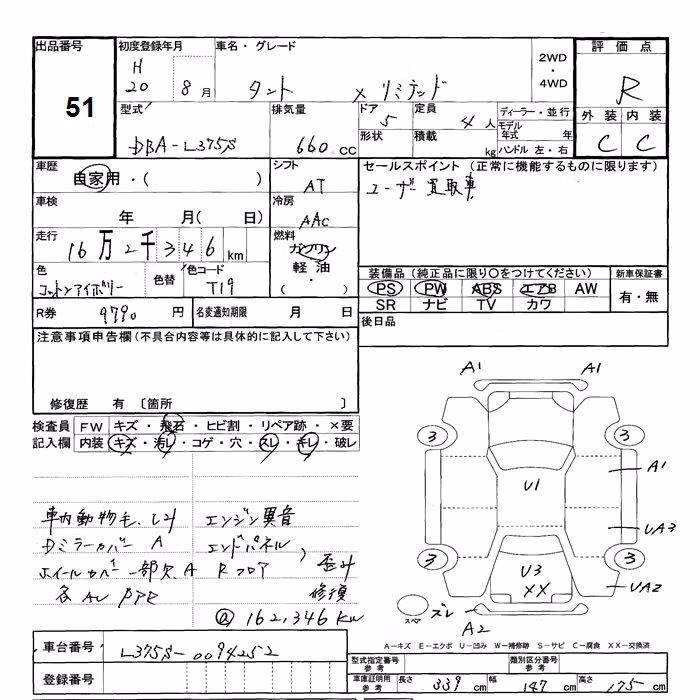 出品番号
51
初度登録年月
H 20 8 月
車名・グレード
タント × リミテッド
2WD
・
4WD
評価点
R
外装 内装
C C
型式
DBA-L375S
排気量
660 cc
ドア 5
形状
定員 4 人
積載 kg
ディーラー・並行
モデル年式 年
ハンドル 左・右
車歴
自家用・( )
シフト
AT
セールスポイント (正常に機能するものに限ります)
ユーザー買取車
車検
年 月( 日)
冷房
AAC
走行
16万2千346km
燃料
ガソリン
軽油・
( )
色
コットンアイボリー
色替
色コード
T19
装備品 (純正品に限り〇をつけてください)
PS PW ABS エアB AW
SR ナビ TV カワ
新車保証書
有・無
R券 9790 円
名変通知期限 月 日
後日品
注意事項申告欄 (不具合内容等は具体的に記入して下さい)
修復歴 有 〔箇所 〕
検査員
記入欄
FW キズ・飛石・ヒビ割・リペア跡・×要
内装 キズ・汚レ・コゲ・穴・スレ・キレ・破レ
車内動物毛、シミ
Dミラーカバー A
ホイールカバー一部欠、A
エンジン異音
エンドパネル、
Rフロア
歪み
修復
@ 162,346 km
A1 A1
3 3
A1
U1
UA3
3 3
U3
XX
UA2
スペア ズレ
A2
A=キズ E=エクボ U=凹み W=補修跡 S=サビ C=腐食 XX=交換済
車台番号
L375S-0094252
登録番号
型式指定番号
参考
類別区分番号
参考
車庫証明用
参考
長さ 339 cm 幅 147 cm 高さ 175 cm